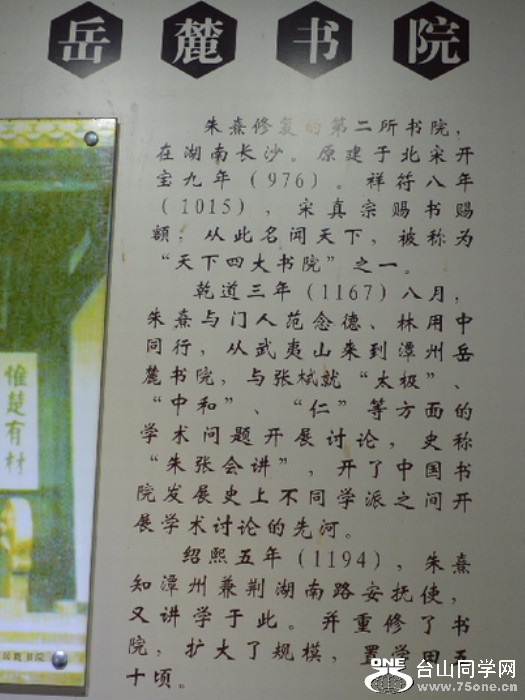 岳麓书院
朱熹修复的第二所书院，
在湖南长沙。原建于北宋开
宝九年（976）。祥符八年
（1015），宋真宗赐书赐
额，从此名闻天下，被称为
“天下四大书院”之一。
乾道三年（1167）八月，
朱熹与门人范念德、林用中
同行，从武夷山来到潭州岳
麓书院，与张栻就“太极”、
“中和”、“仁”等方面的
学术问题开展讨论，史称
“朱张会讲”，开了中国书
院发展史上不同学派之间开
展学术讨论的先河。
绍熙五年（1194），朱熹
知潭州兼荆湖南路安抚使，
又讲学于此。并重修了书
院，扩大了规模，置学田五
十顷。
惟楚有材
岳麓书院
ONE
台山同学网
www.75one.cn